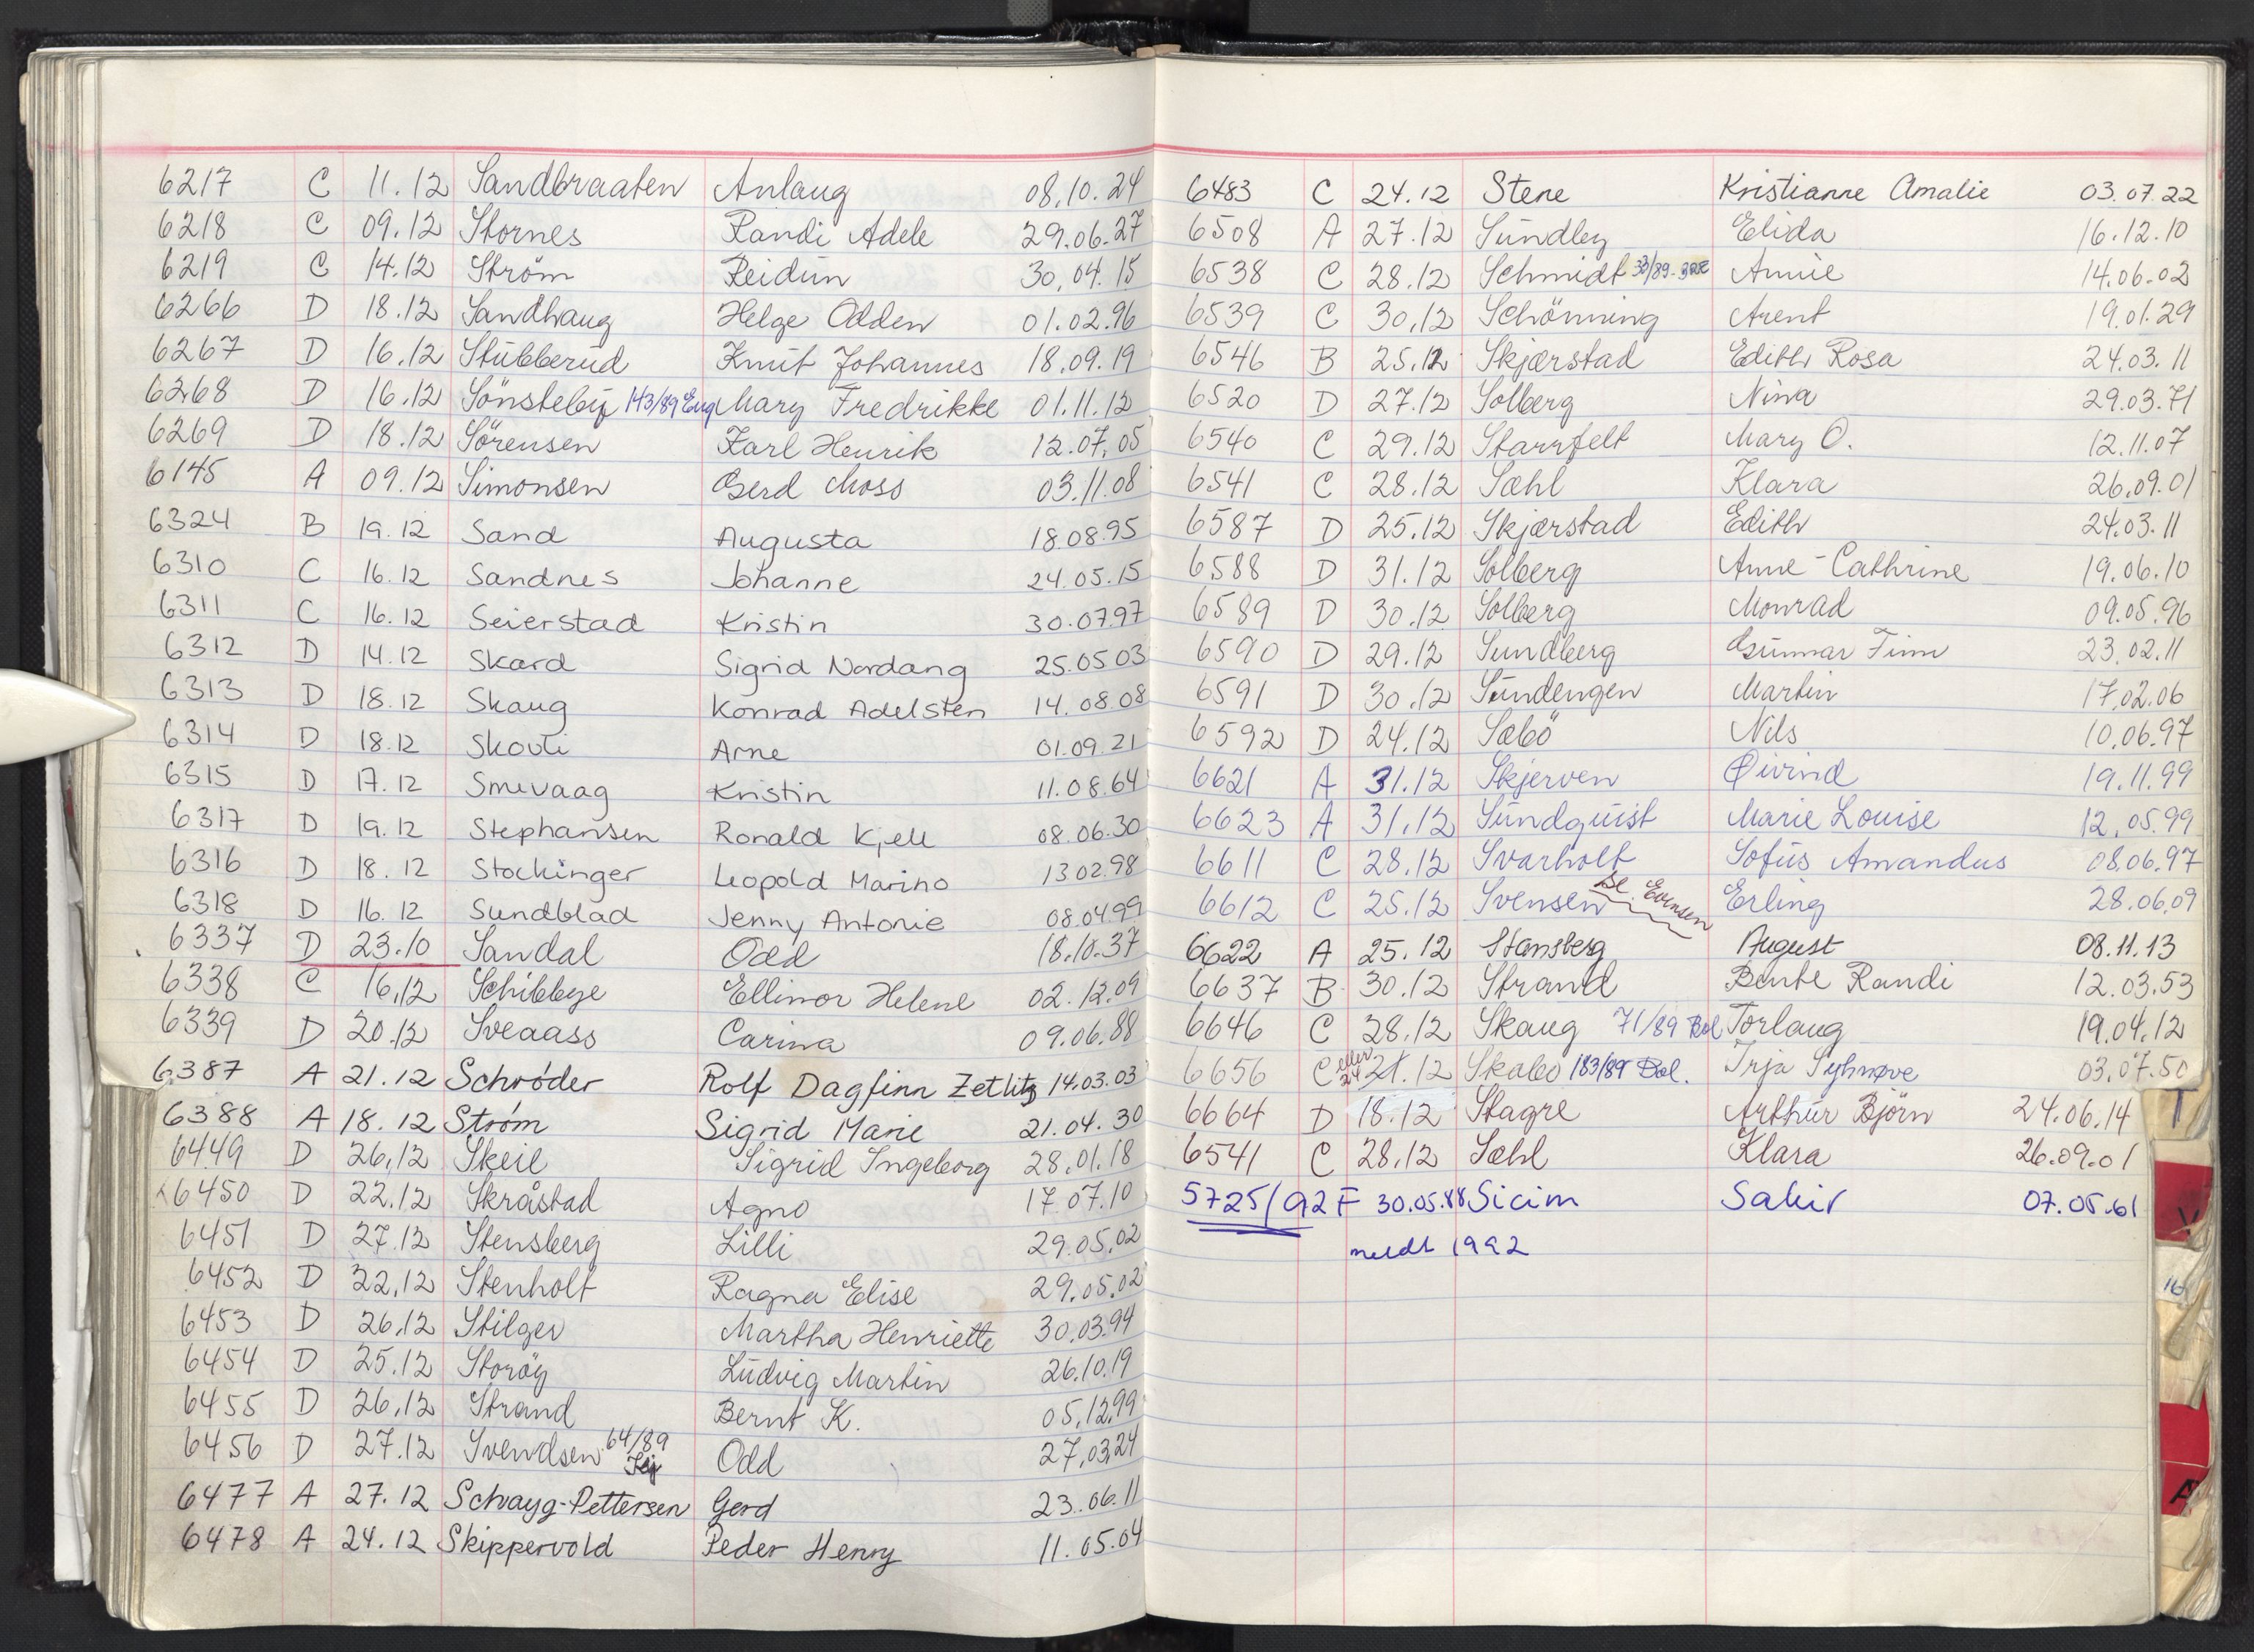 6217 C 11.12 Sandbraaten Anlaug 08.10.24
6218 C 09.12 Stornes Randi Adele 29.06.27
6219 C 14.12 Ström Reidun 30.04.15
6266 D 18.12 Sandhaug Helge Odden 01.02.96
6267 D 16.12 Stubberud Knut Johannes 18.09.19
6268 D 16.12 Sönsteby 143/89 Eug Mary Fredrikke 01.11.12
6269 D 18.12 Sörensen Karl Henrik 12.07.05
6145 A 09.12 Simonsen Gerd Moss 03.11.08
6324 B 19.12 Sand Augusta 18.08.95
6310 C 16.12 Sandnes Johanne 24.05.15
6311 C 16.12 Seierstad Kristin 30.07.97
6312 D 14.12 Skard Sigrid Nordang 25.05.03
6313 D 18.12 Skaug Konrad Adelsten 14.08.08
6314 D 18.12 Skovli Arne 01.09.21
6315 D 17.12 Smevaag Kristin 11.08.64
6317 D 19.12 Stephansen Ronald Kjell 08.06.30
6316 D 18.12 Stockinger Leopold Marino 13.02.98
6318 D 16.12 Sundblad Jenny Antonie 08.04.99
6337 D 23.10 Sandal Odd 18.10.37
6338 C 16.12 Schibbye Ellinor Helene 02.12.09
6339 D 20.12 Sveaass Carina 09.06.88
6387 A 21.12 Schrøder Rolf Dagfinn Zetlitz 14.03.03
6388 A 18.12 Strøm Sigrid Marie 21.04.30
6449 D 26.12 Skeie Sigrid Ingeborg 28.01.18
6450 D 22.12 Skråstad Agno 17.07.10
6451 D 27.12 Stensberg Lilli 29.05.02
6452 D 22.12 Stenholt Ragna Elise 29.05.02
6453 D 26.12 Stilger Martha Henriette 30.03.94
6454 D 25.12 Storöy Ludvig Martin 26.10.19
6455 D 26.12 Strand Bernt K. 05.12.99
6456 D 27.12 Svendsen 64/89 Odd 27.03.24
6477 A 27.12 Schayg-Pettersen Gerd 23.06.11
6478 A 24.12 Skippervold Peder Henry 11.05.04
6483 C 24.12 Stene Kristianne Amalie 03.07.22
6508 A 27.12 Sundley Elida 16.12.10
6538 C 28.12 Schmidt 33/89 Annie 14.06.02
6539 C 30.12 Schönning Arent 19.01.29
6546 B 25.12 Skjærstad Edith Rosa 24.03.11
6520 D 27.12 Solberg Nina 29.03.71
6540 C 29.12 Starrfelt Mary O. 12.11.07
6541 C 28.12 Sæhl Klara 26.09.01
6587 D 25.12 Skjærstad Edith 24.03.11
6588 D 31.12 Solberg Anne-Cathrine 19.06.10
6589 D 30.12 Solberg Monrad 09.05.96
6590 D 29.12 Sundberg Gunnar Finn 23.02.11
6591 D 30.12 Sundengen Martin 17.02.06
6592 D 24.12 Sæbö Nils 10.06.97
6621 A 31.12 Skjerven Øivind 19.11.99
6623 A 31.12 Sundquist Marie Louise 12.05.99
6611 C 28.12 Svarholt Sofus Amandus 08.06.97
6612 C 25.12 Svensen se. Evensen Erling 28.06.09
6622 A 25.12 Stensberg August 08.11.13
6637 B 30.12 Strand Bente Randi 12.03.53
6646 C 28.12 Skaug 71/89 Bol Torlaug 19.04.12
6656 C eller 24 21.12 Skabo 183/89 Bol. Irja Synnøve 03.07.50
6664 D 18.12 Stagre Arthur Björn 24.06.14
6541 C 28.12 Sæhl Klara 26.09.01
5725/92 F 30.05.88 Sicim Sakir 07.05.61
meldt 1992
T
V
A